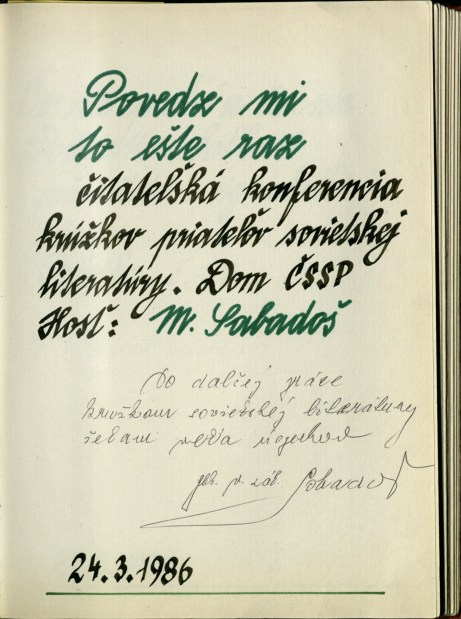 Povedz mi
to ešte raz
čitatelská konferencia
krúžkov priateľov sovietskej
literatúry. Dom ČSSP
Hosť: M. Sabadoš
Do dalčej práce
sovietskéj literatúry
želam veľa úspechov
Sabadoš
24.3.1986